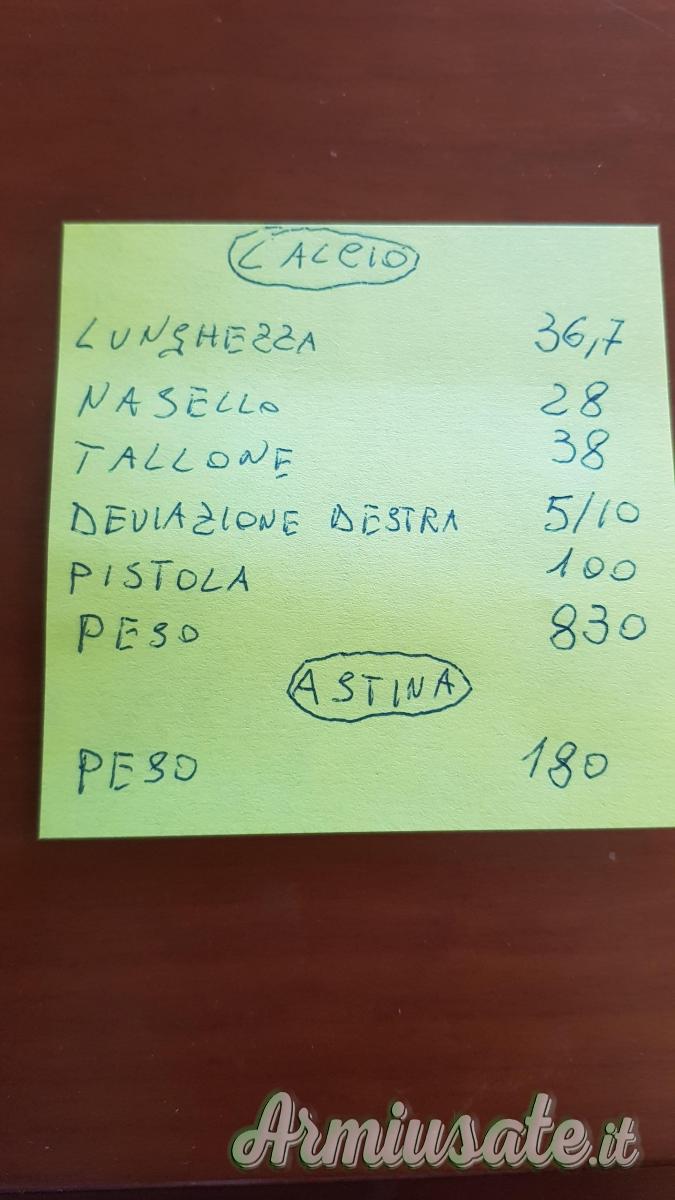 CALCIO
LUNGHEZZA 36,7
NASELLO 28
TALLONE 38
DEVIAZIONE DESTRA 5/10
PISTOLA 100
PESO 830
ASTINA
PESO 180
Armiusate.it